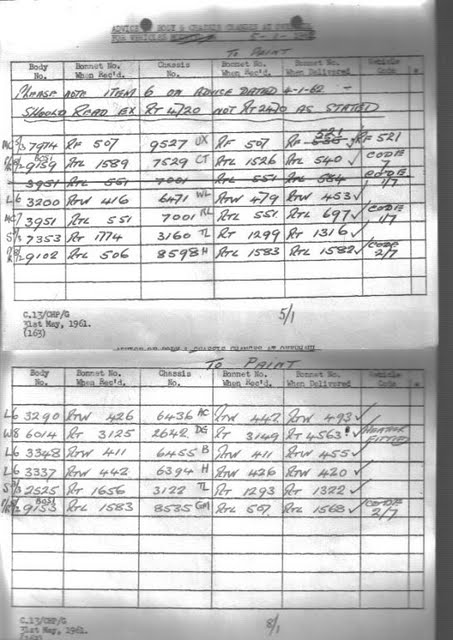 ADVICE OF BODY & CHASSIS CHANGES AT OVERHAUL
FOR VEHICLES 5-1-1962
TO PAINT
Body No. Bonnet No. When Rec'd. Chassis No. Bonnet No. When Rec'd. Bonnet No. When Delivered Vehicle Code *
PLEASE NOTE ITEM 6 ON ADVICE DATED 4-1-62 -
SHOULD READ EX RT 4720 NOT RT 2470 AS STATED
7974 RF 507 9527 UX RF 507 521 RF 521
9159 RTL 1589 7529 CT RTL 1526 RTL 540 ✓ CODE 7
3951 RTL 551 7001 RTL 551 RTL 584 CODE 1/7
L6 3200 RTW 416 6471 WL RTW 479 RTW 453 ✓
3951 RTL 551 7001 RL RTL 551 RTL 697 ✓ CODE 1/7
7353 RT 1774 3160 TL RT 1299 RT 1316 ✓
9102 RTL 506 8598 H RTL 1583 RTL 1582 ✓ CODE 2/7
C.13/OHP/G
31st May, 1961.
(163)
5/1
TO PAINT
Body No. Bonnet No. When Rec'd. Chassis No. Bonnet No. When Rec'd. Bonnet No. When Delivered Vehicle Code *
L6 3290 RTW 426 6436 AC RTW 442 RTW 493 ✓
W8 6014 RT 3125 2642 DG RT 3149 RT 4563 ✓ HEATER FITTED
L6 3348 RTW 411 6455 B RTW 411 RTW 455 ✓
L6 3337 RTW 442 6394 H RTW 426 RTW 420 ✓
2525 RT 1656 3122 TL RT 1293 RT 1322 ✓
9153 RTL 1583 8535 GM RTL 507 RTL 1568 ✓ CODE 2/7
C.13/OHP/G
31st May, 1961.
(163)
8/1